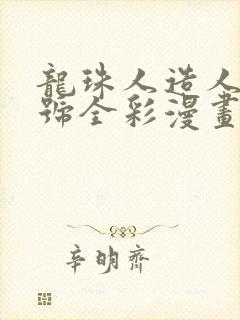 龍珠人造人
號全彩漫畫
辛明齊